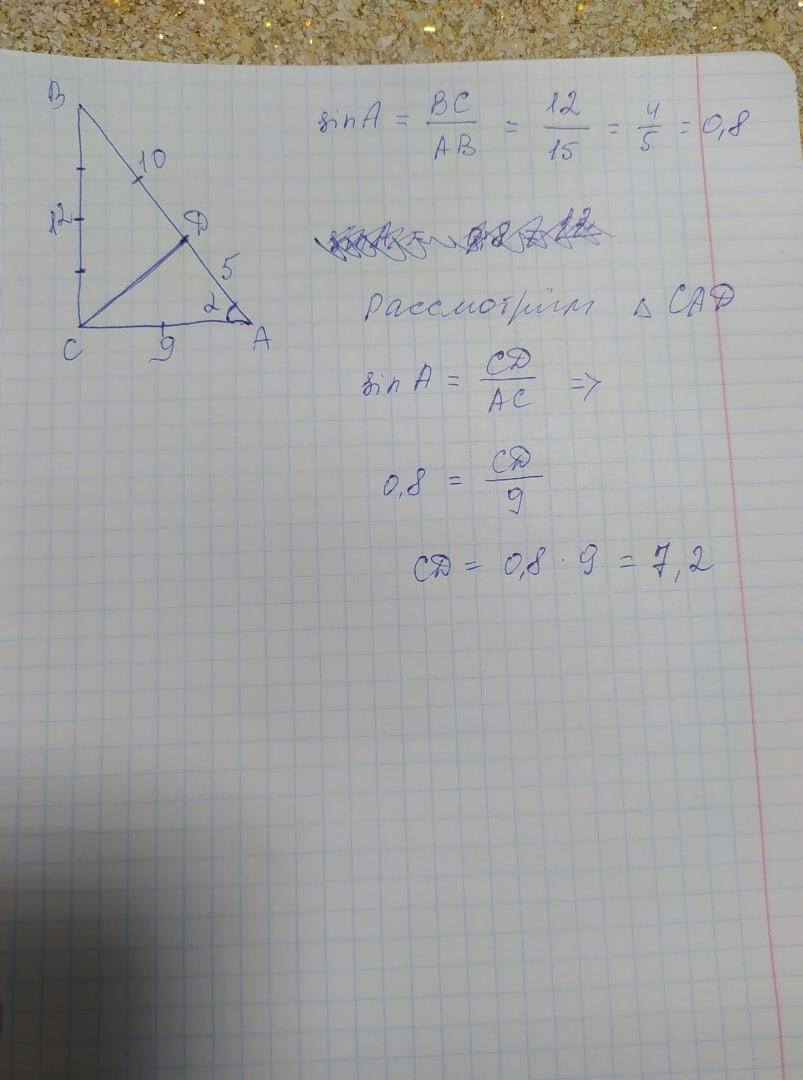 B
10
12
D
5
2
C
9
A
sin A = BC/AB = 12/15 = 4/5 = 0,8
Рассмотрим △ CAD
sin A = CD/AC =>
0,8 = CD/9
CD = 0,8 · 9 = 7,2